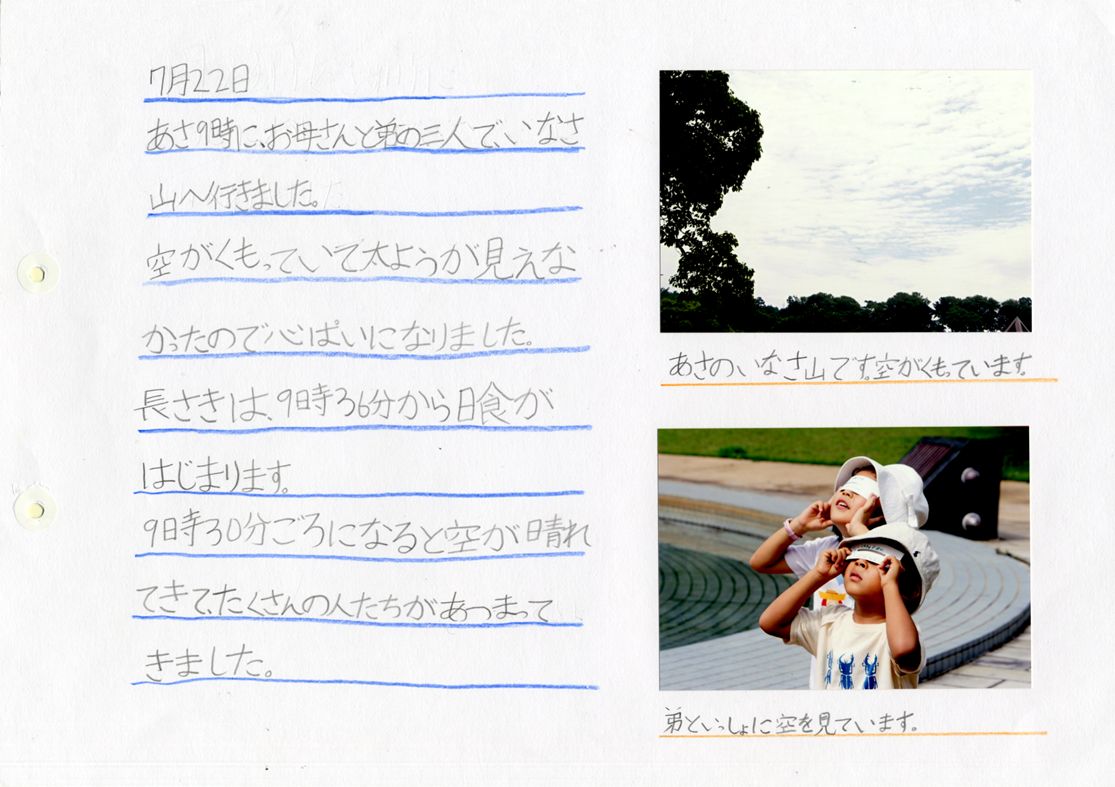 7月22日
あさ9時に、お母さんと弟の三人で、いなさ
山へ行きました。
空がくもっていて太ようが見えな
かったので心ぱいになりました。
長さきは、9時36分から日食が
はじまります。
9時30分ごろになると空が晴れ
てきて、たくさんの人たちがあつまって
きました。
あさの、いなさ山です。空がくもっています。
弟といっしょに空を見ています。